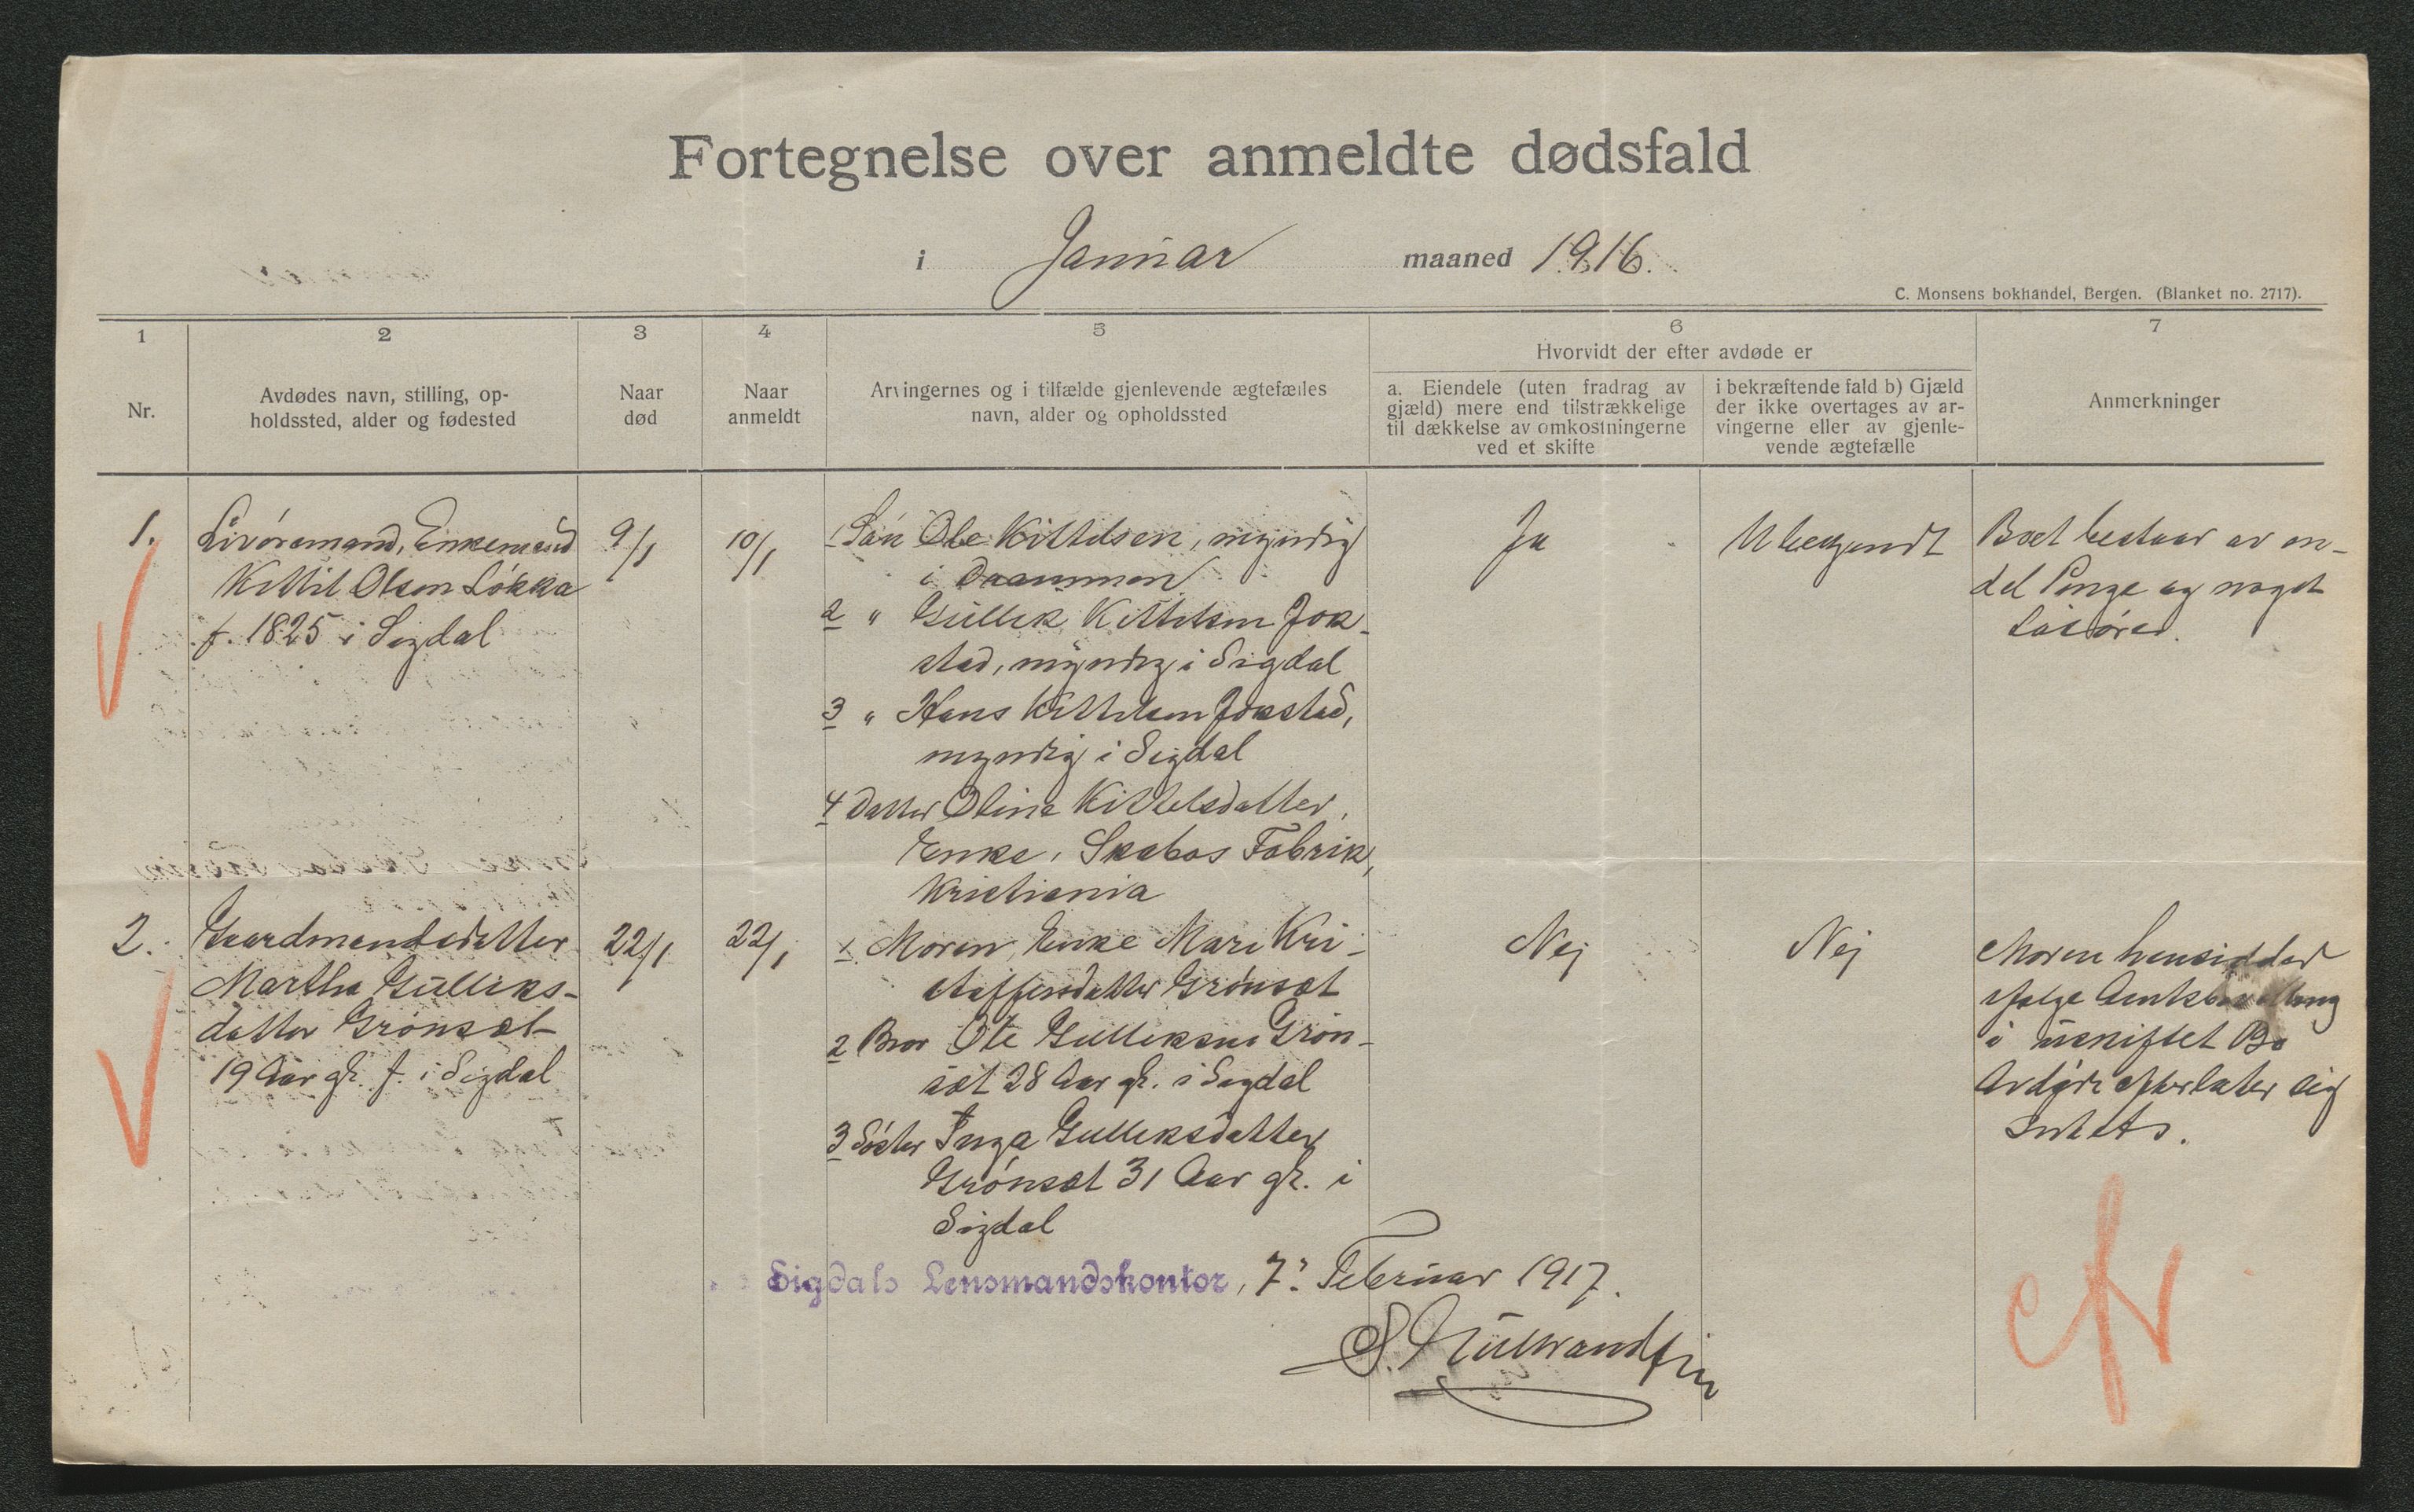 Fortegnelse over anmeldte dødsfald
i Januar maaned 1916.
C. Monsens bokhandel, Bergen. (Blanket no. 2717).
1 2 3 4 5 6 7
Nr.
Avdødes navn, stilling, op-
holdssted, alder og fødested
Naar
død
Naar
anmeldt
Arvingernes og i tilfælde gjenlevende ægtefælles
navn, alder og opholdssted
Hvorvidt der efter avdøde er
a. Eiendele (uten fradrag av
gjæld) mere end tilstrækkelige
til dækkelse av omkostningerne
ved et skifte
i bekræftende fald b) Gjæld
der ikke overtages av ar-
vingerne eller av gjenle-
vende ægtefælle
Anmerkninger
1.
Livøremand, Enkemand
Kittil Olsen Løkka
f. 1825 i Sigdal
9/1
10/1
1 Søn Ole Kittelsen, myndig
i Drammen
2 " Gullik Kittelsen Jok-
stad, myndig i Sigdal
3 " Hans Kittelsen Jokstad,
myndig i Sigdal
4 Datter Oline Kittelsdatter,
Enke, Skabos Fabrik,
Kristiania
Ja
Ubekjendt
Boet bestaar av en-
del Penge og noget
Løsøre.
2.
Gaardmandsdatter
Martha Gulliks-
datter Grønsæt
19 Aar gl. f. i Sigdal
22/1
22/1
1 Moren, Enke Mari Kri-
stoffersdatter Grønsæt
2 Bror Ole Gulliksen Grøn-
sæt 28 Aar gl. i Sigdal
3 Søster Inga Gulliksdatter
Grønsæt 31 Aar gl. i
Sigdal
Nej
Nej
Moren hensidder
ifølge Amtsbevilling
i uskiftet Bo
Avdøde efterlater sig
Intet.
Sigdals Lensmandskontor, 7. Februar 1917.